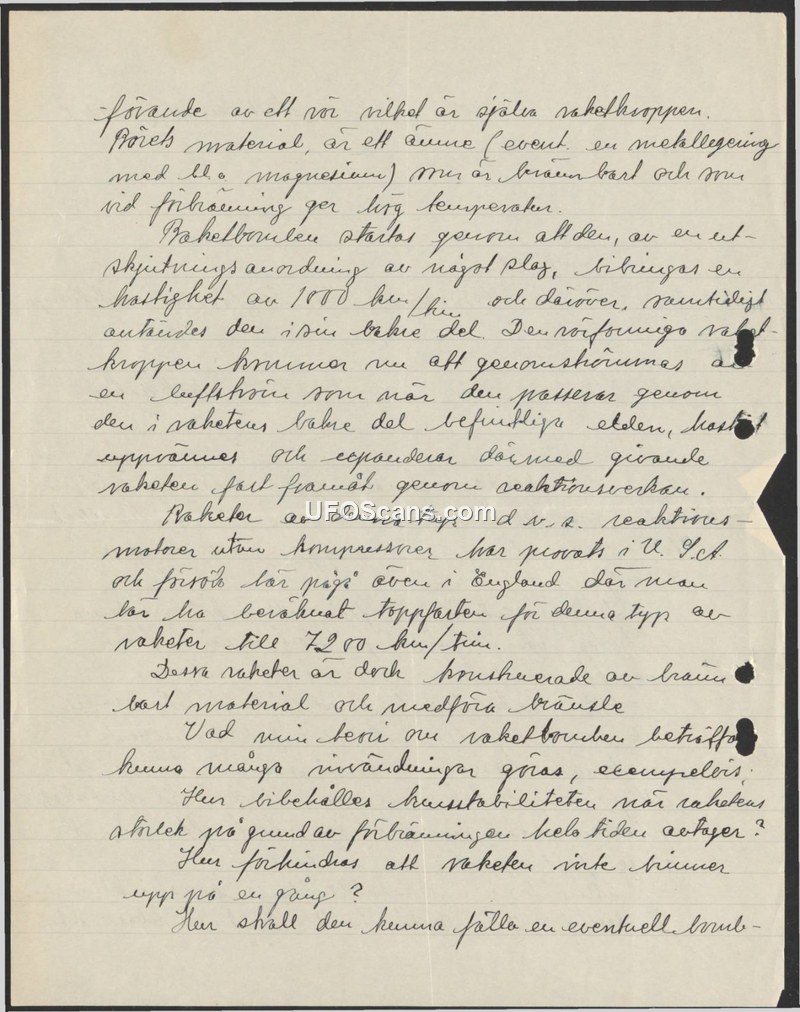 -förande av ett rör vilket är själva raketkroppen.
Rörets material, är ett ämne (event. en metallegering
med bl.a. magnesium) som är brännbart och som
vid förbränning ger hög temperatur.
Raketbomben startas genom att den, av en ut-
skjutningsanordning av något slag, bibringas en
hastighet av 1000 km/tim och däröver, samtidigt
antändes den i sin bakre del. Den rörformiga raket-
kroppen kommer nu att genomströmmas av
en luftström som när den passerar genom
den i raketens bakre del befintliga elden, hastigt
uppvärmes och expanderar därmed givande
raketen fart framåt genom reaktionsverkan.
Raketer av denna typ d.v.s. reaktions-
UFOScans.com
motorer utan kompressorer har provats i U.S.A.
och försök lär pågå även i England där man
lär ha beräknat toppfarten för denna typ av
raketer till 7200 km/tim.
Dessa raketer är dock konstruerade av bränn
bart material och medföra bränsle
Vad min teori om raketbomben beträffar
kunna många invändningar göras, exempelvis;
Hur bibehålles kursstabiliteten när raketens
storlek på grund av förbränningen hela tiden avtager?
Hur förhindras att raketen inte brinner
upp på en gång?
Hur skall den kunna fälla en eventuell bomb-